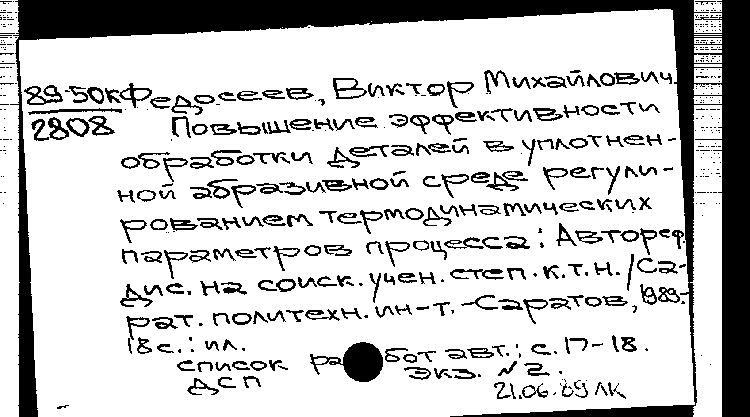 89-50к Федосеев, Виктор Михайлович.
2808 Повышение эффективности
обработки деталей в уплотнен-
ной абразивной среде регули-
рованием термодинамических
параметров процесса: Автореф.
дис. на соиск. учен. степ. к.т.н. / Са-
рат. политехн. ин-т. -Саратов, 1989.-
18 с.: ил.
список работ авт.: с. 17-18.
ДСП экз. №2.
21.06.89 ЛК